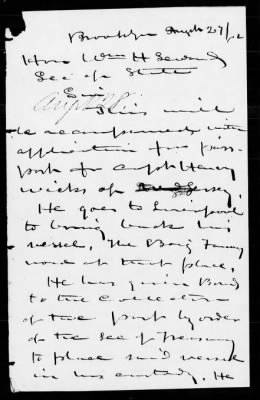 Brooklyn Augst 27/62
Hon Wm H Seward
Sec of State
Sir
This will
be accompanied with
application for pass-
port for Capt Henry
Wicks of Jersey,
He goes to Liverpool
to bring back his
vessel, The Barq Fanny
now at that place,
He has given Bond
to the Collector
of the port by order
of the Sec of Treasury
to place said vessel
in his custody. He